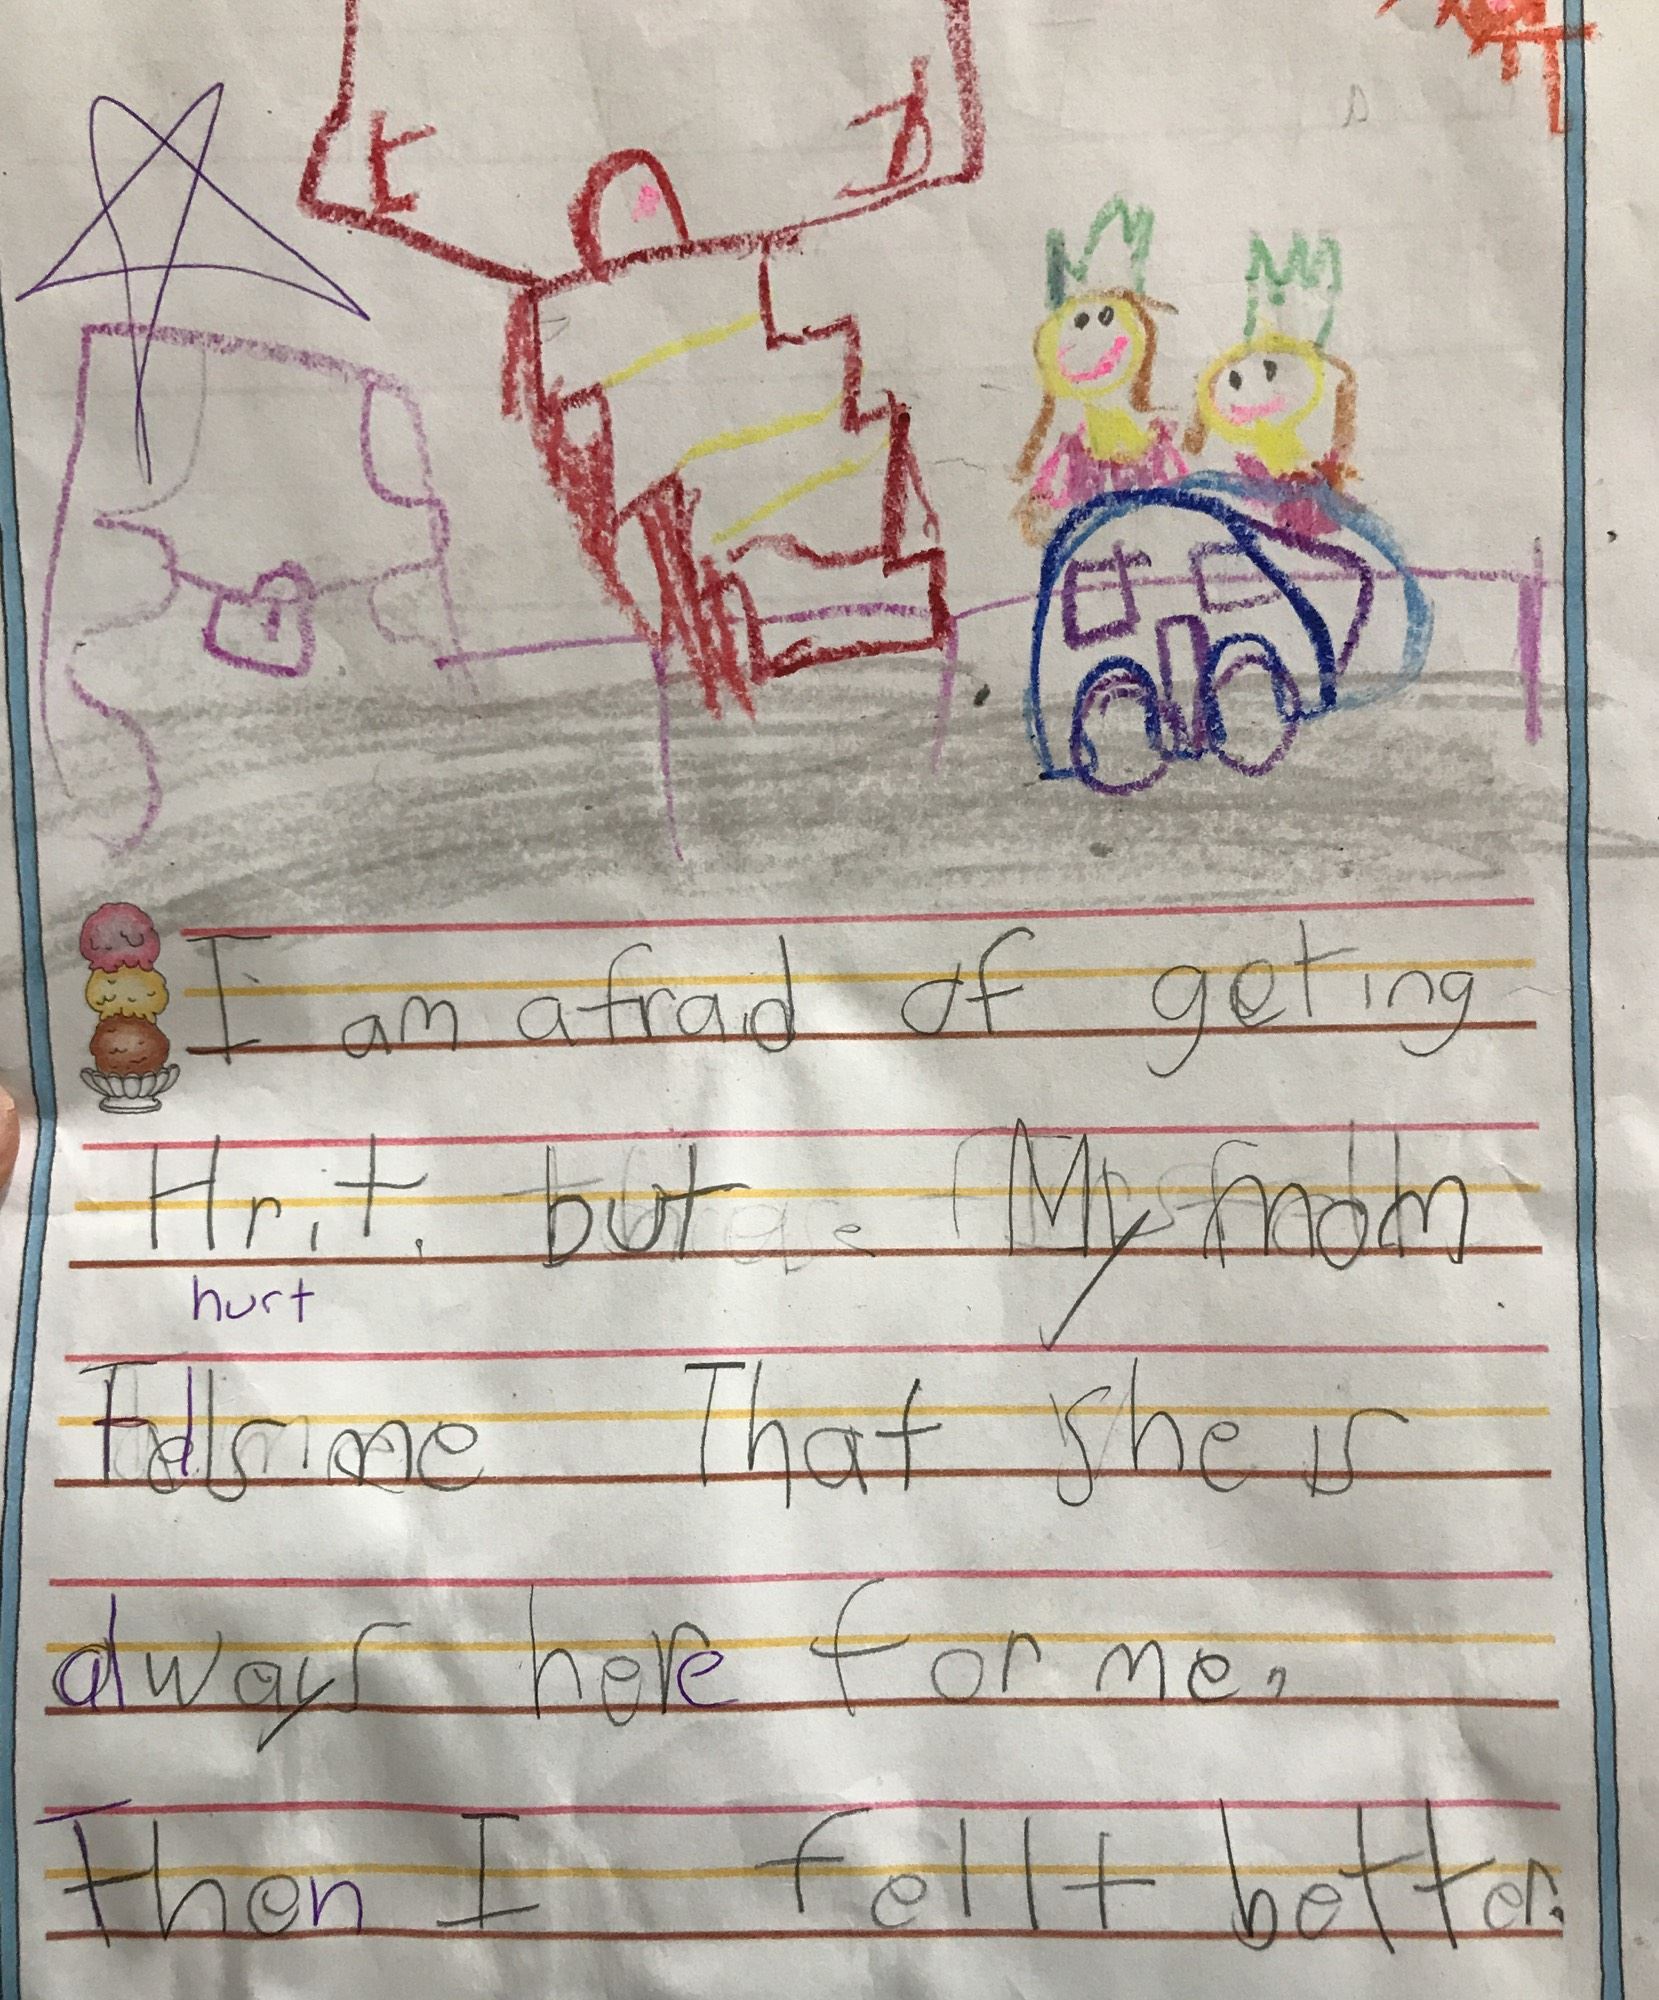 I am afraid of geting
Hrit. but My mom
hurt
Tells me That she is
always here for me.
Then I fellt better.